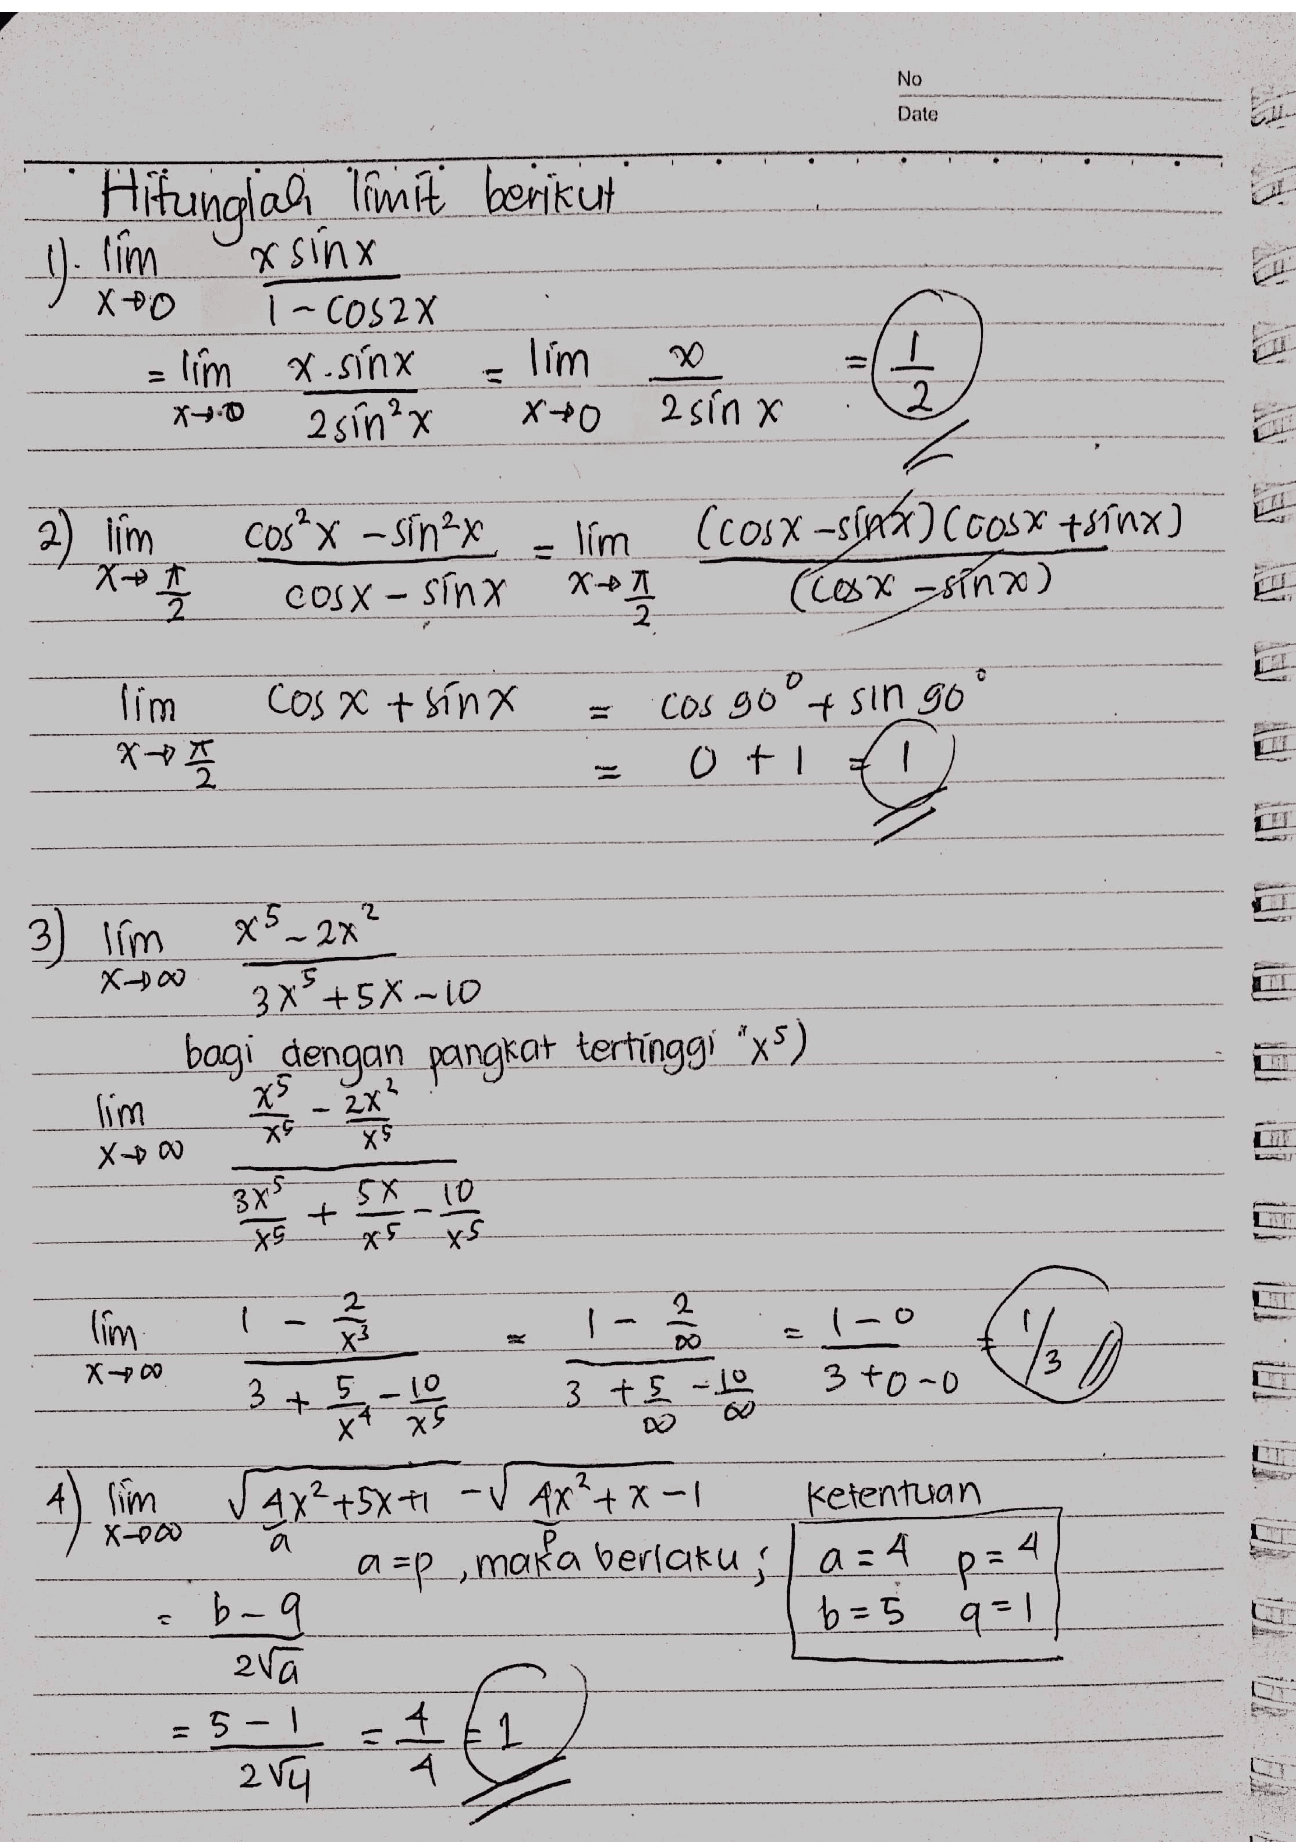 No
Date
Hitunglah limit berikut
1). lim x→0 x sin x / 1 - cos 2x
= lim x→0 x . sin x / 2 sin² x = lim x→0 x / 2 sin x = 1/2
2) lim x→π/2 cos² x - sin² x / cos x - sin x = lim x→π/2 (cos x - sin x) (cos x + sin x) / (cos x - sin x)
lim x→π/2 cos x + sin x = cos 90° + sin 90°
= 0 + 1 = 1
3) lim x→∞ x⁵ - 2x² / 3x⁵ + 5x - 10
bagi dengan pangkat tertinggi "x⁵)
lim x→∞ x⁵/x⁵ - 2x²/x⁵ / 3x⁵/x⁵ + 5x/x⁵ - 10/x⁵
lim x→∞ 1 - 2/x³ / 3 + 5/x⁴ - 10/x⁵ = 1 - 2/∞ / 3 + 5/∞ - 10/∞ = 1 - 0 / 3 + 0 - 0 = 1/3
4) lim x→∞ √4x² + 5x + 1 - √4x² + x - 1 Ketentuan
a p
a = p, maka berlaku ; a = 4 p = 4
= b - q / 2√a b = 5 q = 1
= 5 - 1 / 2√4 = 4/4 = 1